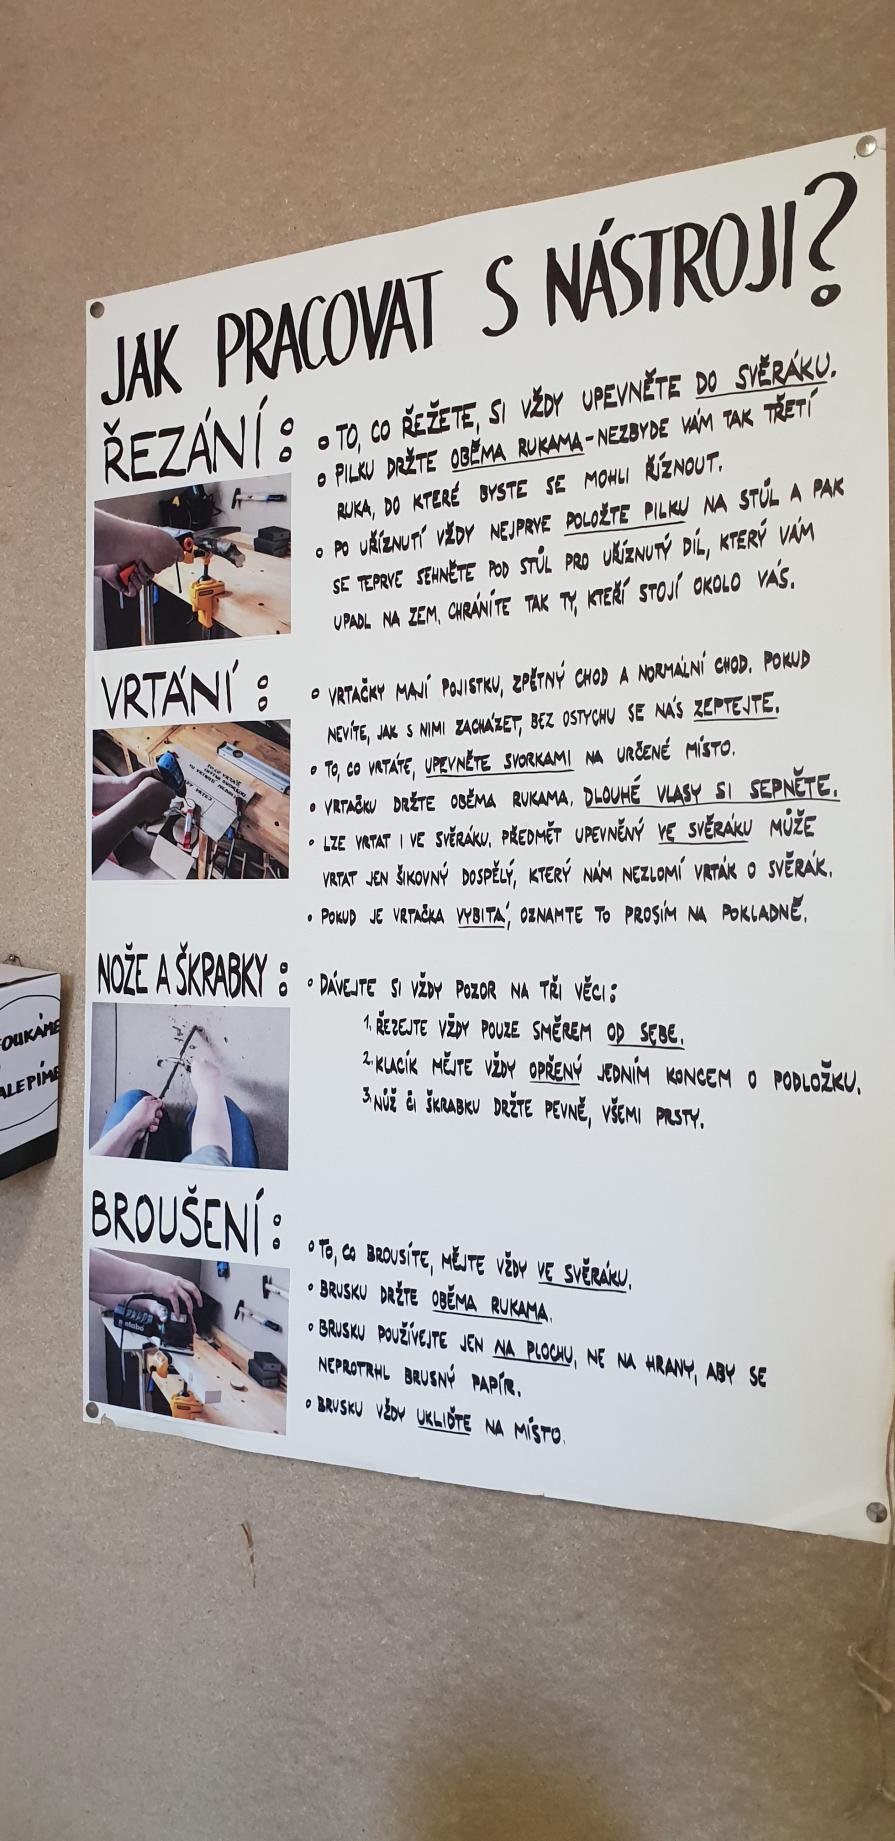 JAK PRACOVAT S NÁSTROJI?
ŘEZÁNÍ:
• TO, CO ŘEŽETE, SI VŽDY UPEVNĚTE DO SVĚRÁKU.
• PILKU DRŽTE OBĚMA RUKAMA - NEZBYDE VÁM TAK TŘETÍ
RUKA, DO KTERÉ BYSTE SE MOHLI ŘÍZNOUT.
• PO UŘÍZNUTÍ VŽDY NEJPRVE POLOŽTE PILKU NA STŮL A PAK
SE TEPRVE SEHNĚTE POD STŮL PRO UŘÍZNUTÝ DÍL, KTERÝ VÁM
UPADL NA ZEM. CHRÁNÍTE TAK TY, KTEŘÍ STOJÍ OKOLO VÁS.
VRTÁNÍ:
• VRTAČKY MAJÍ POJISTKU, ZPĚTNÝ CHOD A NORMÁLNÍ CHOD. POKUD
NEVÍTE, JAK S NIMI ZACHÁZET, BEZ OSTYCHU SE NÁS ZEPTEJTE.
• TO, CO VRTÁTE, UPEVNĚTE SVORKAMI NA URČENÉ MÍSTO.
• VRTAČKU DRŽTE OBĚMA RUKAMA. DLOUHÉ VLASY SI SEPNĚTE.
• LZE VRTAT I VE SVĚRÁKU. PŘEDMĚT UPEVNĚNÝ VE SVĚRÁKU MŮŽE
VRTAT JEN ŠIKOVNÝ DOSPĚLÝ, KTERÝ NÁM NEZLOMÍ VRTÁK O SVĚRÁK.
• POKUD JE VRTAČKA VYBITÁ, OZNAMTE TO PROSÍM NA POKLADNĚ.
NOŽE A ŠKRABKY:
• DÁVEJTE SI VŽDY POZOR NA TŘI VĚCI:
1. ŘEZEJTE VŽDY POUZE SMĚREM OD SEBE.
2. KLACÍK MĚJTE VŽDY OPŘENÝ JEDNÍM KONCEM O PODLOŽKU.
3. NŮŽ ČI ŠKRABKU DRŽTE PEVNĚ, VŠEMI PRSTY.
BROUŠENÍ:
• TO, CO BROUSÍTE, MĚJTE VŽDY VE SVĚRÁKU.
• BRUSKU DRŽTE OBĚMA RUKAMA.
• BRUSKU POUŽÍVEJTE JEN NA PLOCHU, NE NA HRANY, ABY SE
NEPROTRHL BRUSNÝ PAPÍR.
• BRUSKU VŽDY UKLIĎTE NA MÍSTO.
metabo
OUKÁME
ALEPÍME